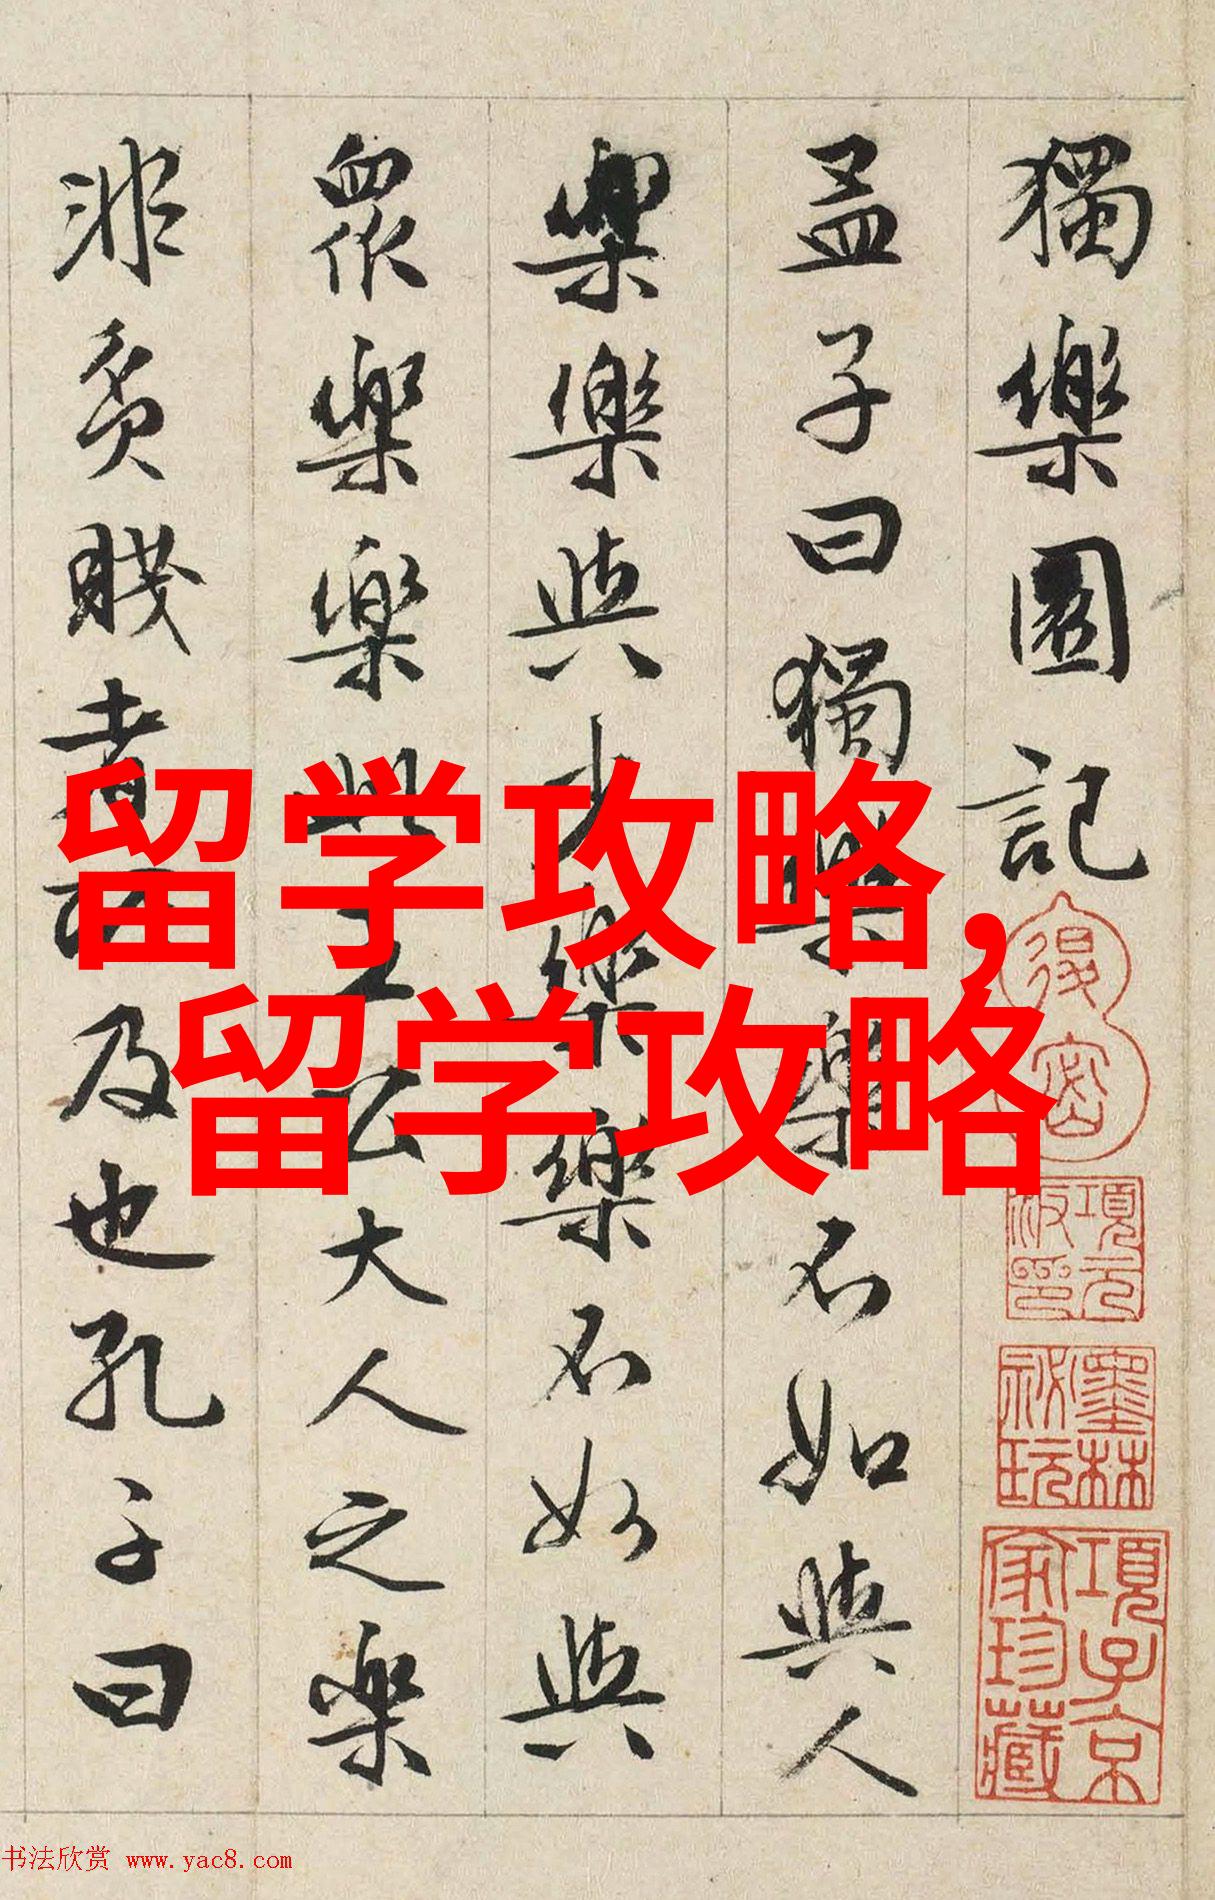 獨樂園記
孟子曰獨樂樂不如與人
樂樂與少樂樂不如與
眾樂樂此王公大人之樂
非貧賤者所及也孔子曰
留学攻略,
留学攻略
項元汴印
墨林祕玩
項子京家珍藏
书法欣赏 www.yac8.com